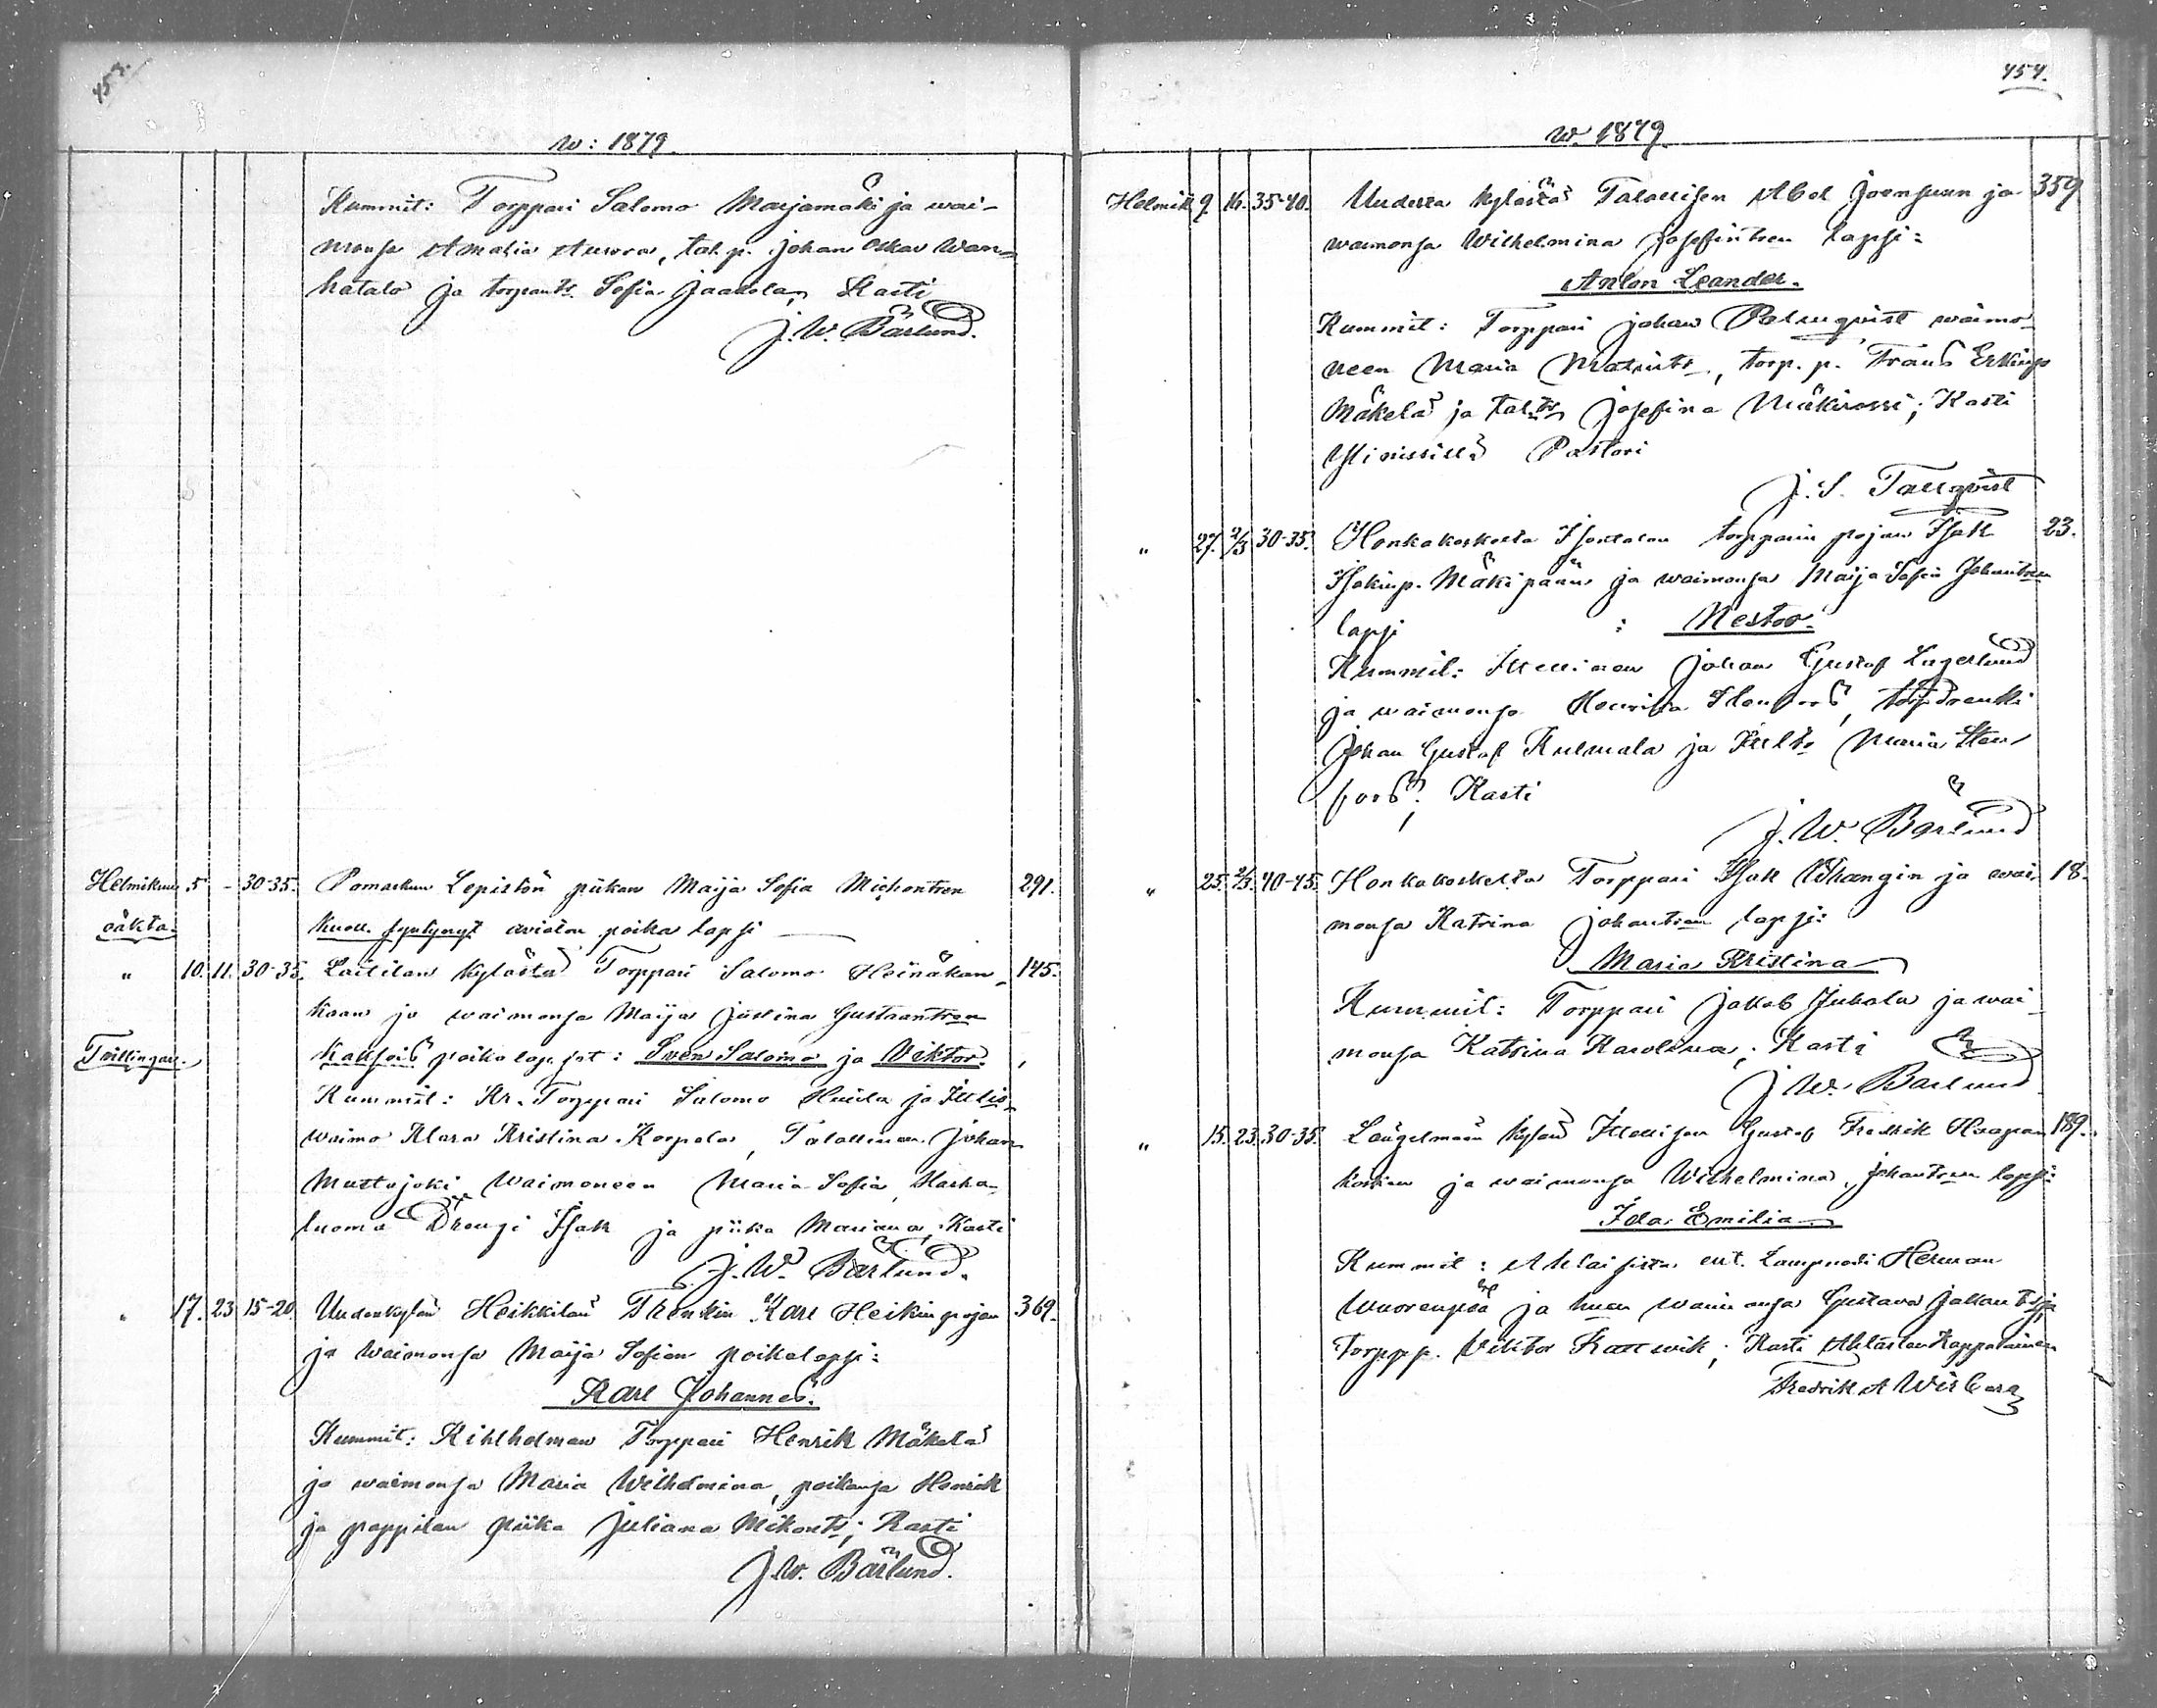 453.
w: 1879.
Kummit: Torppari Salomo Marjamäki ja wai-
monsa Amalia Aurora, tal.p. Johan Oskar Wan-
hatalo ja torpantr Sofia Jaakola; Kasti
J. W. Bärlund.
Helmikuu 5 - 30-35. Pomarkun Lepistön piikan Maija Sofia Michontren 291.
oäkta. kuoll. syntynyt aviston poika lapsi
" 10. 11. 30-35. Laitilan kylästä Torppari Salomo Heinäkan- 145.
kaan ja waimonsa Maija Justina Gustaantren
Tvillingar. kaksois poikalapset: Sven Salomo ja Viktor.
Kummit: Kr. Torppari Salomo ja Itellis-
waimo Klara Kristina Korpela, Talollinen Johan
Mustajoki waimoneen Maria Sofia, Haska-
luoma Drengi Isak ja piika Mariana; Kasti
J. W. Bärlund.
" 17. 23 15-20. Uudenkylän Heikkilän Trenkin Karl Heikin pojan 369.
ja waimonsa Maija Sofian poikalapsi:
Karl Johannes.
Kummit: Kihlholman Torppari Henrik Mäkelä
ja waimonsa Maria Wilhelmina, poikansa Henrik
ja pappilan piika Juliana Mikontr; Kasti
J. W. Bärlund.
454.
w. 1879.
Helmik 9. 16. 35-40. Uudesta kylästä Talollisen Abel Joensuun ja 359
waimonsa Wilhelmina Josefintren lapsi:
Anton Leander.
Kummit: Torppari Johan Palmqvist waimo-
neen Maria Matintr, torp. p. Frans Erkinp
Mäkelä ja taltr Josefina Mäkirossi; Kasti
Pastori
J. S. Tallqvist
" 27. 2/3 30-35. Honkakoskelta Isontalon torpparin pojan Isak 23.
Isakinp. Mäkipään ja waimonsa Maija Sofia Johantren
lapsi : Nestor.
Kummit: Itellinen Johan Gustaf Lagerlund
ja waimonsa Henrika Stenfors, torp.drenki
Johan Gustaf Kulmala ja Itelltr Maria Sten-
fors; Kasti
J. W. Bärlund
" 25. 2/3. 40-45. Honkakoskelta Torppari Isak Wihangin ja wai- 18.
monsa Katrina Johantren lapsi:
Maria Kristina
Kummit: Torppari Jakob Juhala ja wai-
monsa Katrina Karolina; Kasti
J. W. Bärlund
" 15. 23. 30-35. Längelmään kylän Itellisen Gustaf Fredrik Haapa- 189.
kosken ja waimonsa Wilhelmina Johantren lapsi:
Ida Emilia
Kummit: Ahlaisista ent. Lampuodi Herman
Wuorenpää ja hänen waimonsa Gustava Jakantr ja
torpp p. Viktor Kallwik; Kasti Ahlaisten Kappalainen
Fredrik A Wirberg